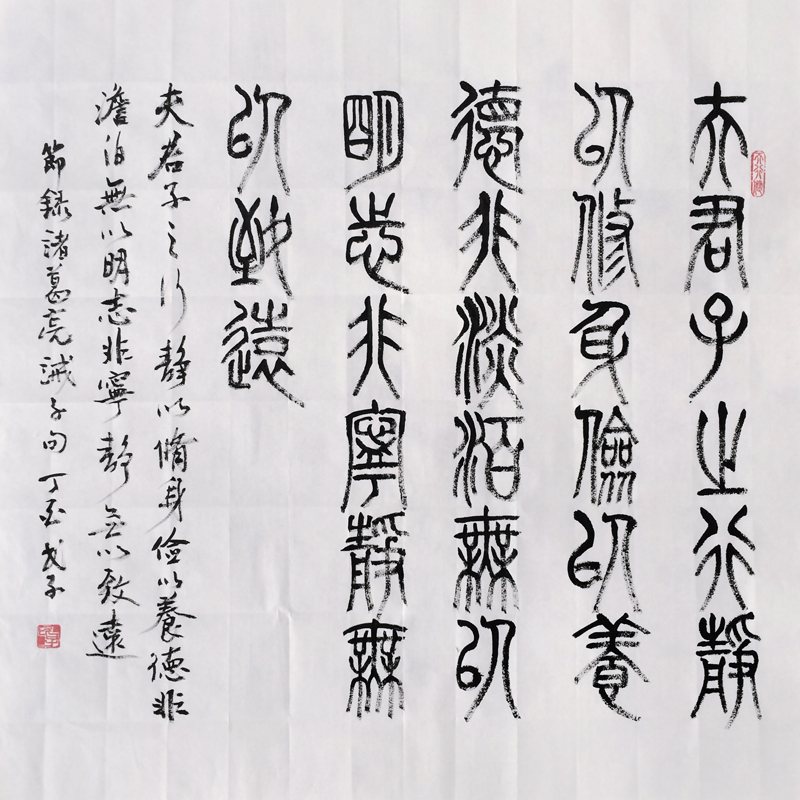 夫君子之行靜
以修身儉以養
德非淡泊無以
明志非寧靜無
以致遠
夫君子之行靜以脩身儉以養德非
澹泊無以明志非寧靜無以致遠
節錄諸葛亮誡子句丁